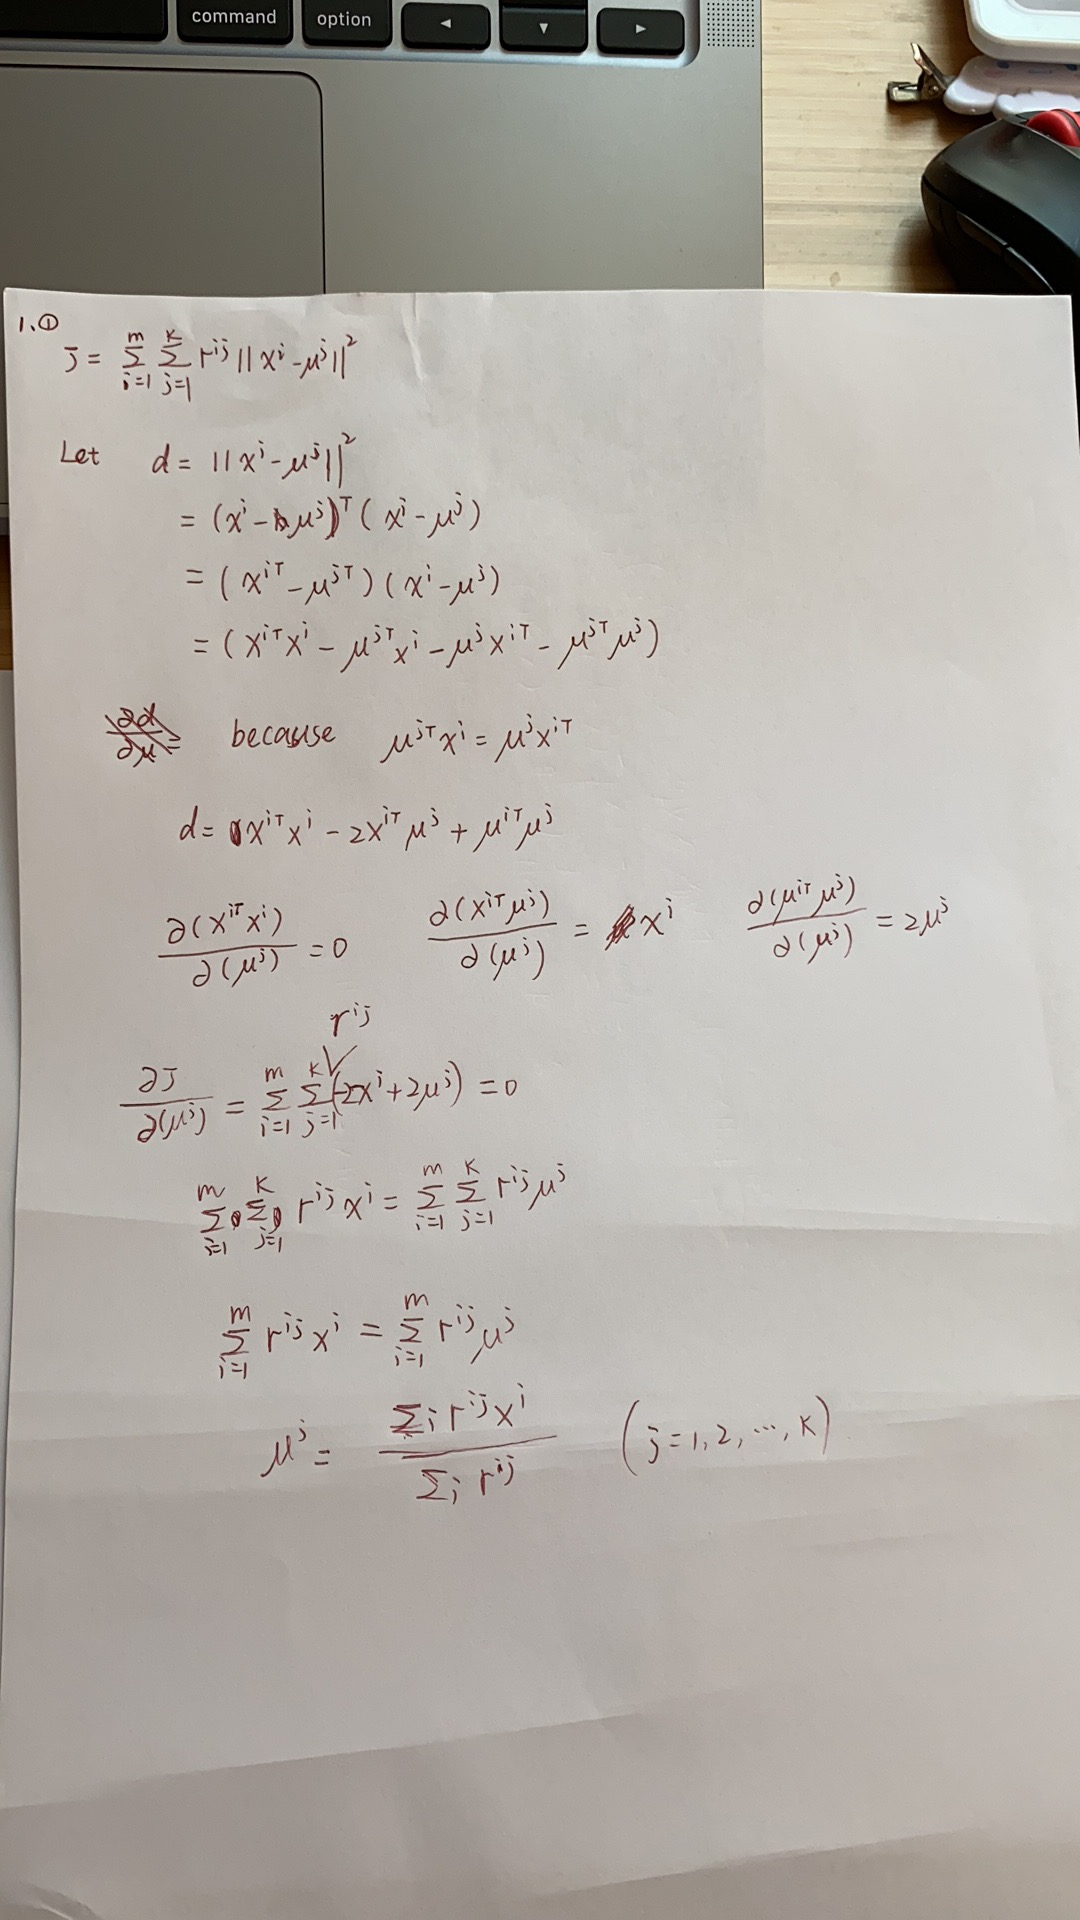 command option ◄ ▼ ►
1.①
J = Σ_{i=1}^{m} Σ_{j=1}^{K} r^{ij} ||x^i - μ^j||^2
Let d = ||x^i - μ^j||^2
= (x^i - μ^j)^T (x^i - μ^j)
= (x^{iT} - μ^{jT}) (x^i - μ^j)
= (x^{iT}x^i - μ^{jT}x^i - μ^j x^{iT} - μ^{jT}μ^j)
because μ^{jT}x^i = μ^j x^{iT}
d = x^{iT}x^i - 2x^{iT}μ^j + μ^{iT}μ^j
∂(x^{iT}x^i)/∂(μ^j) = 0 ∂(x^{iT}μ^j)/∂(μ^j) = x^i ∂(μ^{iT}μ^j)/∂(μ^j) = 2μ^j
∂J/∂(μ^j) = Σ_{i=1}^{m} Σ_{j=1}^{K} r^{ij} (-2x^i + 2μ^j) = 0
Σ_{i=1}^{m} Σ_{j=1}^{K} r^{ij} x^i = Σ_{i=1}^{m} Σ_{j=1}^{K} r^{ij} μ^j
Σ_{i=1}^{m} r^{ij} x^i = Σ_{i=1}^{m} r^{ij} μ^j
μ^j = Σ_i r^{ij} x^i / Σ_i r^{ij} (j = 1, 2, ..., K)